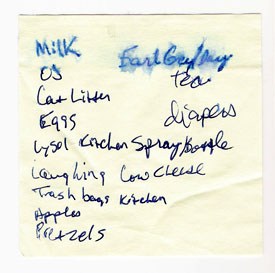 Milk
OJ
Cat Litter
Eggs
Lysol Kitchen Spray Bottle
Laughing Cow Cheese
Trash bags Kitchen
Apples
Pretzels
Earl Grey
tea
diapers